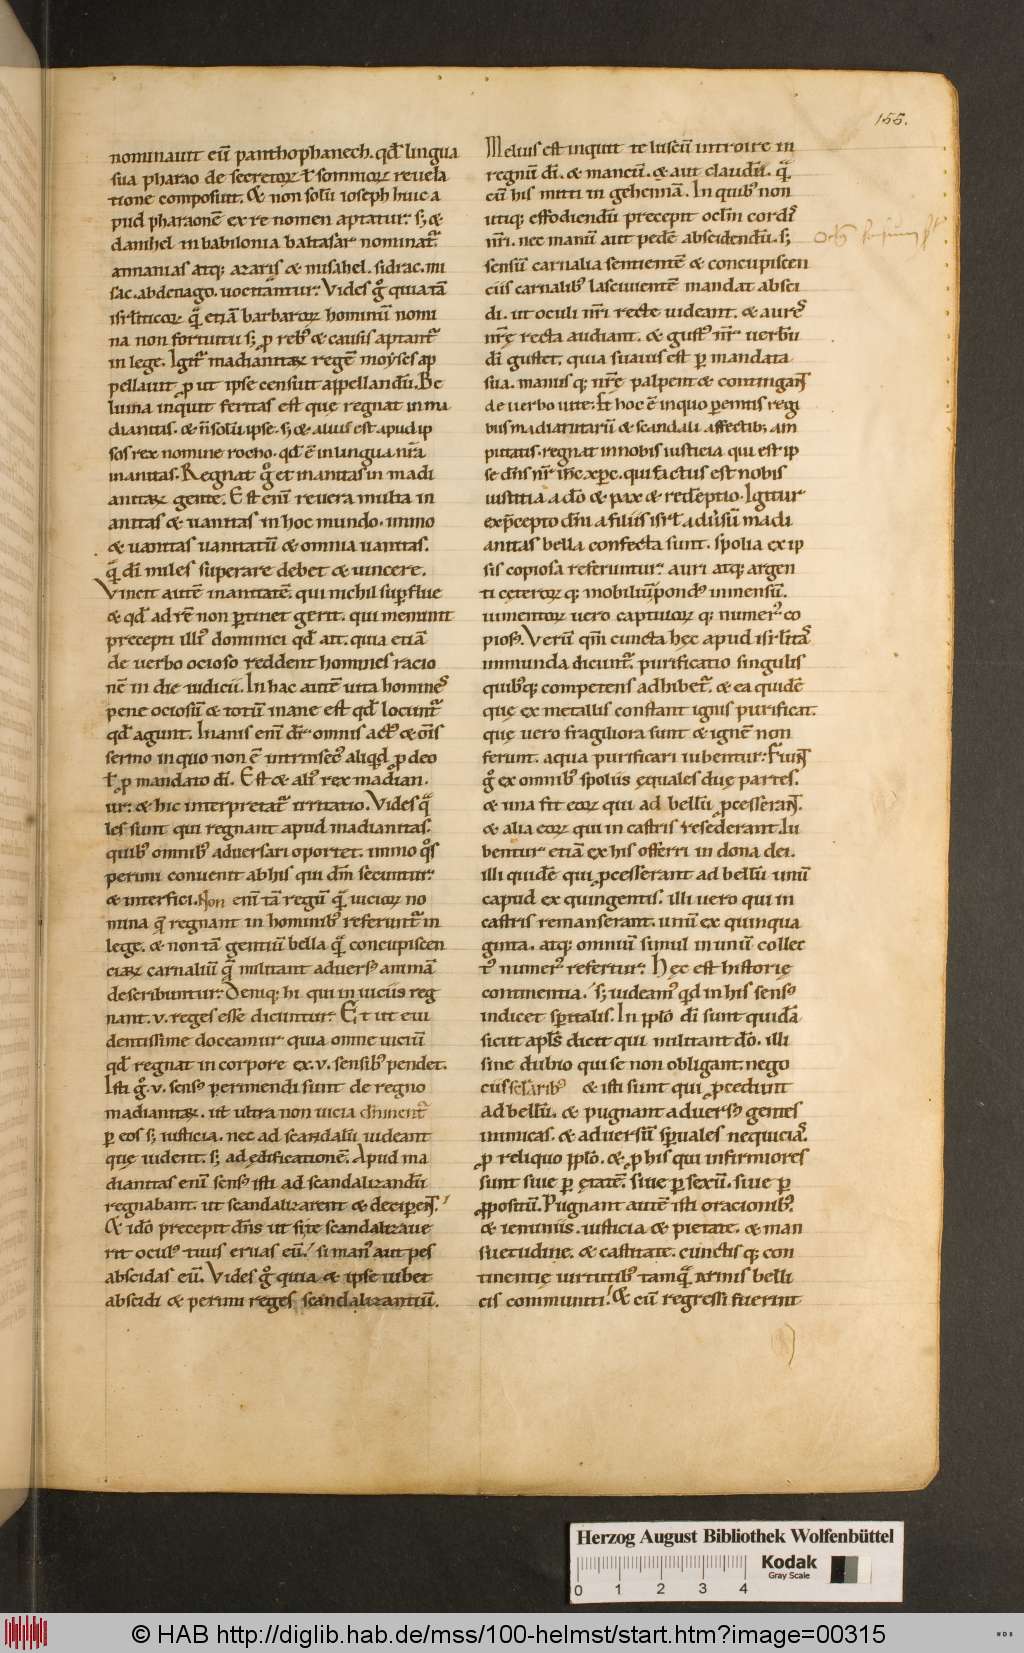 155.
nominauit eu̅ panthophanech. qd̅ lingua
sua pharao de secretoꝝ ł somnioꝝ reuela
tione composuit. & non solu̅ ioseph huic a
pud pharaone̅ ex re nomen aptatur. s; &
danihel in babilonia baltasar nominat᷒.
annanias atq; azaris & misahel. sidrac. mi
sac. abdenago. uocitantur. Vides g̊ quia ta̅
isrl̅iticoꝝ qᷓ etia̅ barbaroꝝ hominu̅ nomi
na non fortuitu s; ꝓ reb; & causis aptant᷒
in lege. Igit᷒ madianitaꝝ rege̅ moyses ap
pellauit ꝓ ut ipse censuit appellandu̅. Be
luina inquit feritas est quę regnat in ma
dianitas. & n̅ solu̅ ipse. s; & alius est apud ip
sos rex nomine rocho. qd̅ e̅ in lingua nr̅a
inanitas. Regnat g̊ et inanitas in madi
anitaꝝ gente. Est eni̅ reuera multa in
anitas & uanitas in hoc mundo. immo
& uanitas uanitatu̅ & omnia uanitas.
qᷓ di̅ miles superare debet & uincere.
Vincit aute̅ inanitate̅. qui nichil supflue
& qd̅ ad re̅ non ꝑtinet gerit. qui meminit
precepti illi᷒ dominici qd̅ ait. quia etia̅
de uerbo ocioso reddent homines racio
ne̅ in die iudicii. In hac aute̅ uita homine᷒s
pene ociosu̅ & totu̅ inane est qd̅ locunt᷒
qd̅ agunt. Inanis eni̅ dr̅ omnis act᷒ & om̅s
sermo in quo non e̅ intrinsec᷒ aliqd̅ ꝓ deo
ł ꝓ mandato di̅. Est & ali᷒ rex madian.
ur. & hic interpretat᷒ irritatio. Vides qᷓ
les sunt qui regnant apud madianitas.
quib; omnib; aduersari oportet. immo qͦs
perimi conuenit ab his qui dm̅ secuntur.
& interfici. Non eni̅ ta̅ regu̅ qᷓ uicioꝝ no
mina q̅ regnant in hominib; referunt᷒ in
lege. & non ta̅ gentiu̅ bella qᷓ concupiscen
ciaꝝ carnaliu̅ q̅ militant aduers᷒ anima̅
describuntur. Deniq; hi qui in uiciis reg
nant. v. reges esse dicuntur. Et ut eui
dentissime doceamur quia omne uiciu̅
qd̅ regnat in corpore ex. v. sensib; pendet.
Isti g̊. v. sens᷒ perimendi sunt de regno
madianitaꝝ. ut ultra non uicia dn̅inent᷒
ꝑ eos s; iusticia. nec ad scandalu̅ uideant
quę uident. s; ad ędificatione̅. Apud ma
dianitas eni̅ sens᷒ isti ad scandalizandu̅
regnabant. ut scandalizarent & deciꝑent.
& ido̅ precepit dn̅s ut si te scandalizaue
rit ocul᷒ tuus eruas eu̅. si man᷒ aut pes
abscidas eu̅. Vides g̊ quia & ipse iubet
abscidi & perimi reges scandalizantiu̅.
Melius est inquit te luscu̅ introire in
regnu̅ di̅. & mancu̅. & aut claudu̅. qᷓ
cu̅ his mitti in gehenna̅. In quib; non
utiq; effodiendu̅ precepit oclm̅ cordis
nr̅i. nec manu̅ aut pede̅ abscidendu̅. s;
sensu̅ carnalia sentiente̅ & concupiscen
ciis carnalib; lasciuiente̅ mandat absci
di. ut oculi nr̅i recte uideant. & aures
nr̅ę recta audiant. & gust᷒ nr̅ uerbu̅
di̅ gustet. quia suauis est ꝑ mandata
sua. manus q; nr̅ę palpent & contingant
de uerbo uite. Et hoc e̅ in quo ꝑemtis regi
bus madianitaru̅ & scandali affectib; am
putatis. regnat in nobis iusticia qui est ip
se dn̅s nr̅ ihc̅ xpc̅. qui factus est nobis
iustitia. a do̅ & pax & rede̅ptio. Igitur
ex p̅cepto dn̅i a filiis isrl̅ aduersu̅ madi
anitas bella confecta sunt. spolia ex ip
sis copiosa referuntur. auri atq; argen
ti ceteroꝝ q; mobiliu̅ pond᷒ inmensu̅.
iumentoꝝ uero captiuoꝝ q; numer᷒ co
pios᷒. Veru̅ qm̅ cuncta hęc apud isrl̅itas
inmunda dicunt᷒. purificatio singulis
quib;q; competens adhibet᷒. & ea quide̅
quę ex metallis constant ignis purificat.
quę uero fragiliora sunt & igne̅ non
ferunt. aqua purificari iubentur. Fiunt
g̊ ex omnib; spoliis ęquales duę partes.
& una fit eoꝝ qui ad bellu̅ ꝓcesserant.
& alia eoꝝ qui in castris resederant. Iu
bentur etia̅ ex his offerri in dona dei.
illi quide̅ qui ꝓcesserant ad bellu̅ unu̅
capud ex quingentis. illi uero qui in
castris remanserant. unu̅ ex quinqua
ginta. atq; omniu̅ simul in unu̅ collec
t᷒ numer᷒ refertur. Hęc est historię
continentia. s; uideam᷒ qd̅ in his sens᷒
indicet spi̅talis. In pplo̅ di̅ sunt quida̅
sicut apl̅s dicit qui militant do̅. illi
sine dubio qui se non obligant. nego
ciis sęclarib; & isti sunt qui ꝓcedunt
ad bellu̅. & pugnant aduers᷒ gentes
inimicas. & aduersu̅ spi̅uales nequicias.
ꝓ reliquo pplo̅. & ꝓ his qui infirmiores
sunt siue ꝑ ętate̅. siue ꝑ sexu̅. siue ꝑ
ꝓpositu̅. Pugnant aute̅ isti oracionib;
& ieiuniis. iusticia & pietate. & man
suetudine. & castitate. cunctis q; con
tinentię uirtutib; tamqᷓ armis belli
cis communiti. & cu̅ regressi fuerint
Herzog August Bibliothek Wolfenbüttel
Kodak
Gray Scale
0 1 2 3 4
© HAB http://diglib.hab.de/mss/100-helmst/start.htm?image=00315